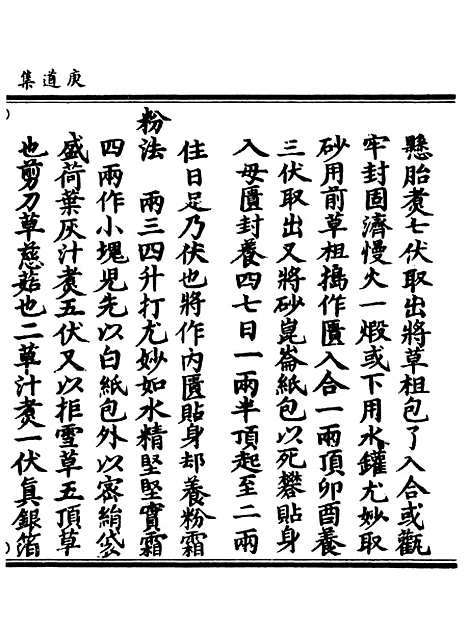 庚道集
懸胎煑七伏取出將草柤包了入合或甎
牢封固濟慢火一煅或下用水鑵尤妙取
砂用前草柤搗作匱入合一兩頂卯酉養
三伏取出又將砂崑崙紙包以死礬貼身
入母匱封養四七日一兩半頂起至二兩
住日足乃伏也將作内匱貼身却養粉霜
粉法 兩三四升打尤妙如水精堅堅實霜
四兩作小塊児先以白紙包外以宻絹袋
盛荷葉灰汁煑五伏又以拒雪草五頂草
也剪刀草慈菇也二草汁煑一伏真銀箔